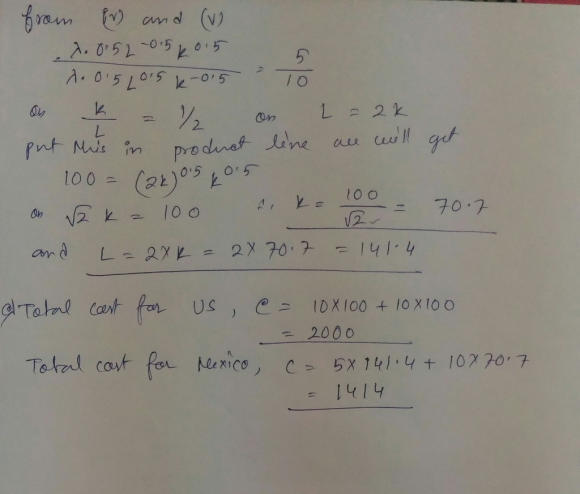 from (iv) and (v)
λ. 0.5 L^-0.5 K^0.5 / λ. 0.5 L^0.5 K^-0.5 = 5/10
or K/L = 1/2 or L = 2K
put this in product line we will get
100 = (2K)^0.5 K^0.5
or √2 K = 100 ∴ K = 100/√2 = 70.7
and L = 2×K = 2×70.7 = 141.4
Total cost for US, C = 10×100 + 10×100
= 2000
Total cost for Mexico, C = 5×141.4 + 10×70.7
= 1414